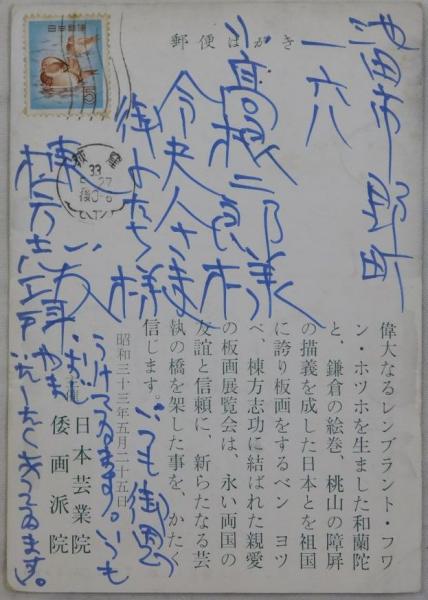 日本郵便
郵便はがき
池田市
一六八
小高根二郎様
令夫人さま
御子たち様
荻窪
33
5.27
後0-6
棟方志功
偉大なるレンブラント・フワ
ン・ホツホを生ました和蘭陀
と、鎌倉の絵巻、桃山の障屏
の描義を成した日本とを祖国
に誇り板画をするベン ヨツ
ベ、棟方志功に結ばれた親愛
の板画展覧会は、永い両国の
友誼と信頼に、新らたなる芸
執の橋を架した事を、かたく
信じます。
昭和三十三年五月二十五日
日本芸業院
倭画派院
いつも御恩
うけてゐます。いつも
ゐます。